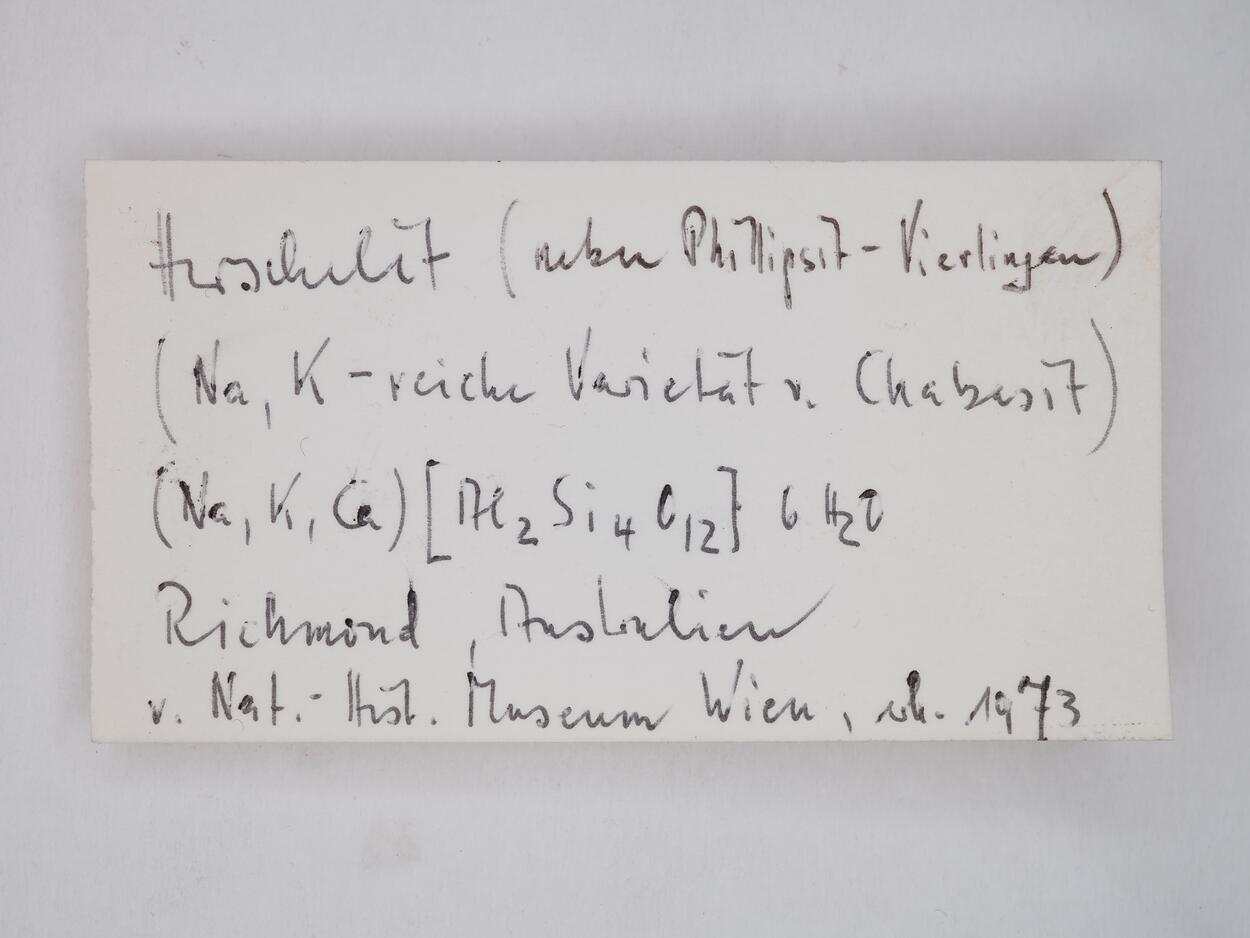 Herschelit (neben Phillipsit-Vierlingen)
(Na, K-reiche Varietät v. Chabasit)
(Na, K, Ca) [Al₂ Si₄ O₁₂] 6 H₂O
Richmond, Australien
v. Nat.-Hist. Museum Wien, erh. 1973